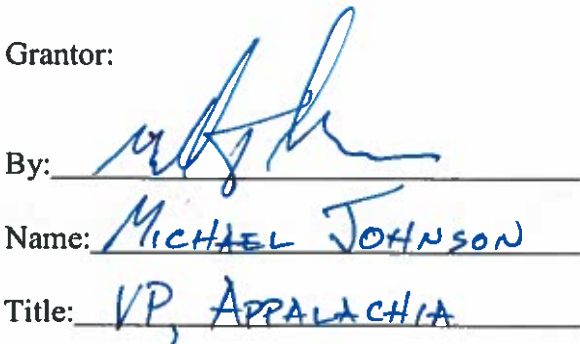 Grantor:
By:
Name: MICHAEL JOHNSON
Title: VP, APPALACHIA